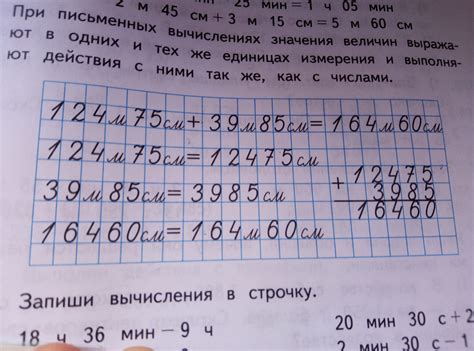 2 м 45 см + 3 м 15 см = 5 м 60 см
25 мин = 1 ч 05 мин
При письменных вычислениях значения величин выража-
ют в одних и тех же единицах измерения и выполня-
ют действия с ними так же, как с числами.
124м75см + 39м85см = 164м60см
124м75см = 12475см
39м85см = 3985см
16460см = 164м60см
+ 12475
3985
16460
Запиши вычисления в строчку.
18 ч 36 мин – 9 ч
20 мин 30 с + 2
2 мин 30 с – 1